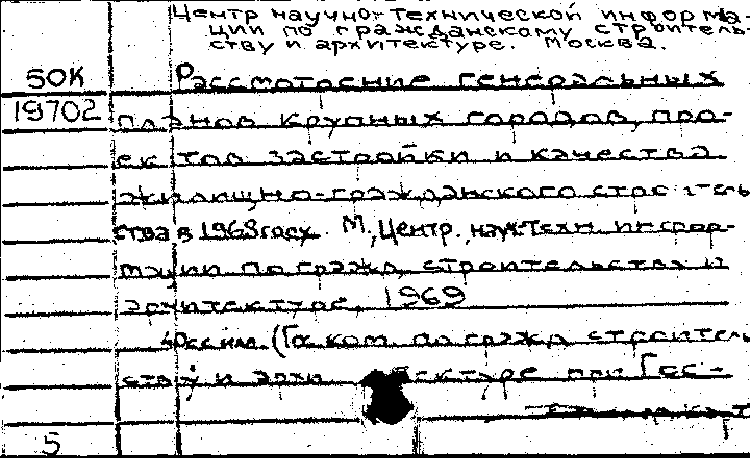 Центр научно-технической информа-
ции по гражданскому строитель-
ству и архитектуре. Москва.
50К Рассмотрение генеральных
19702 планов крупных городов, про-
ектов застройки и качества
жилищно-гражданского строитель
ства в 1968 году. М., Центр. науч. техн. инфор-
мации по гражд. строительству и
архитектуре, 1969
40 с. с илл. (Гос. ком. по гражд. строитель
ству и архитектуре при Гос-
5